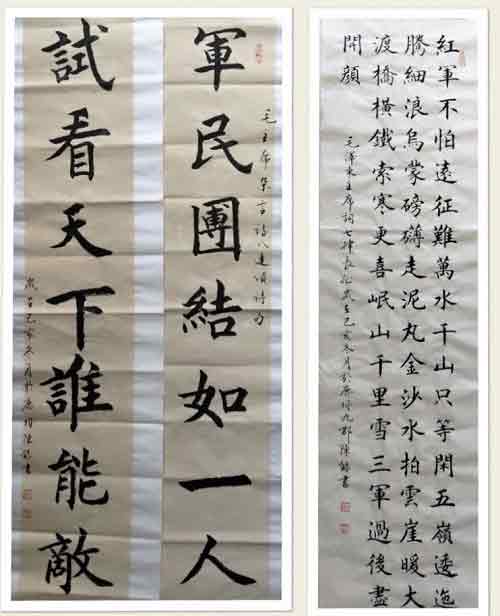 軍民團結如一人
毛主席杂言詩八連頌詩句
試看天下誰能敵
歲在己亥冬月於
紅軍不怕遠征難萬水千山只等閑五嶺逶迤
騰細浪烏蒙磅礴走泥丸金沙水拍雲崖暖大
渡橋橫鐵索寒更喜岷山千里雪三軍過後盡
開顔
毛澤東主席詞七律長征歲在己亥冬月於